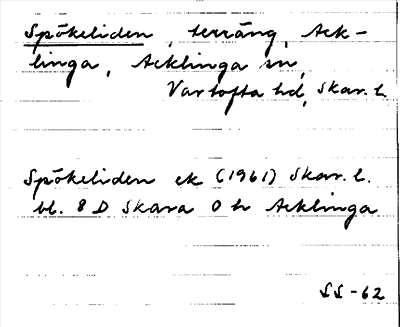 Spökeliden, terräng, Ack-
linga, Acklinga sn,
Vartofta hd, Skar. l.
Spökeliden ek (1961) Skar. l.
bl. 8 D Skara 0 h Acklinga
SS-62